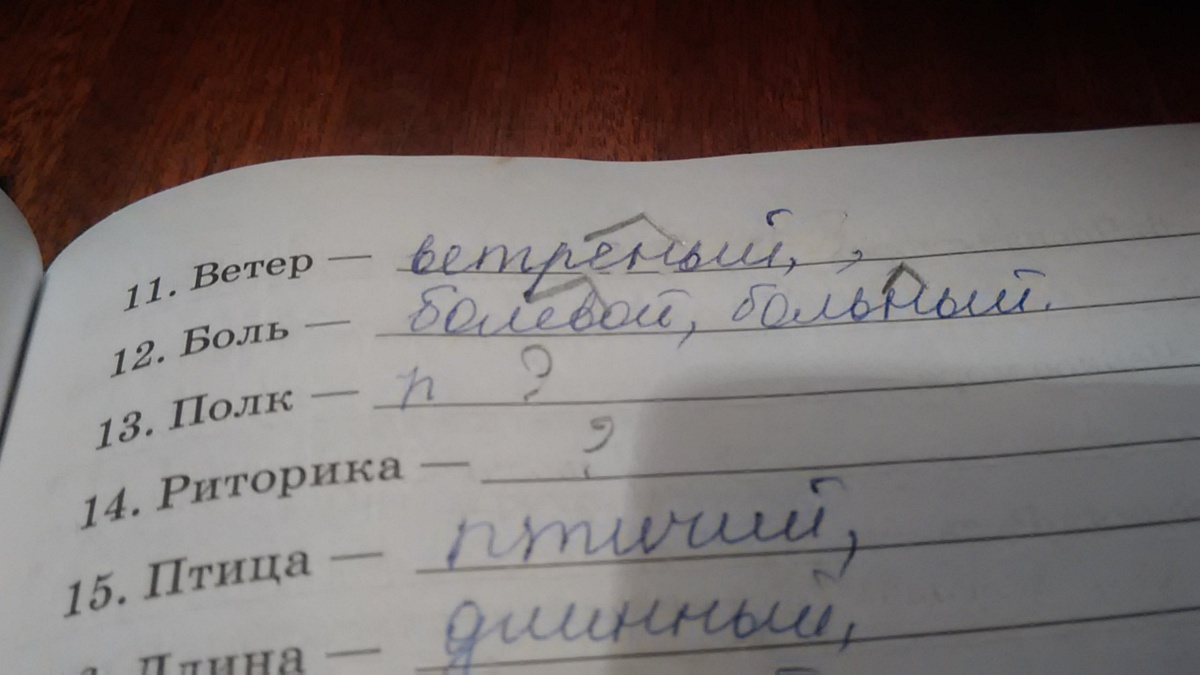 11. Ветер — ветреный, ,
12. Боль — болевой, больный.
13. Полк — п ?
14. Риторика — ?
15. Птица — птичий,
Длина — длинный,